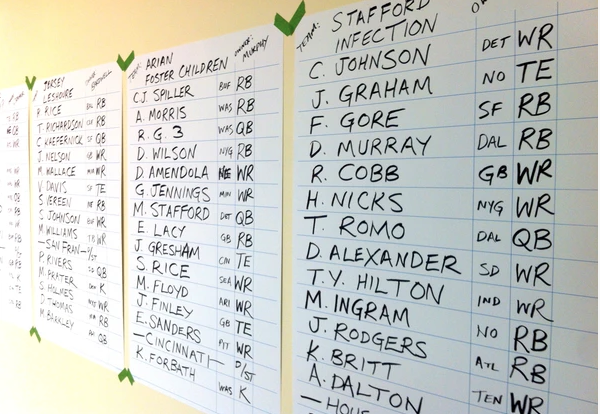 JERSEY
LESHOURE
R RICE BAL RB
T RICHARDSON RB
C KAEPERNICK SF QB
J. NELSON GB WR
M WALLACE MIA WR
V DAVIS SF TE
S VEREEN RB
S JOHNSON BUF WR
M WILLIAMS WR
—SAN FRAN—D/ST
P. RIVERS QB
M. PRATER K
S HOLMES WR
D THOMAS RB
M. BARKLEY QB
TEAM: ARIAN
FOSTER CHILDREN
OWNER: MURPHY
C.J. SPILLER BUF RB
A. MORRIS WAS RB
R. G. 3 WAS QB
D. WILSON NYG RB
D. AMENDOLA NE WR
G. JENNINGS MIN WR
M. STAFFORD DET QB
E. LACY GB RB
J. GRESHAM CIN TE
S. RICE SEA WR
M. FLOYD ARI WR
J. FINLEY GB TE
E. SANDERS PIT WR
—CINCINNATI— D/ST
K. FORBATH WAS K
TEAM: STAFFORD
INFECTION
C. JOHNSON DET WR
J. GRAHAM NO TE
F. GORE SF RB
D. MURRAY DAL RB
R. COBB GB WR
H. NICKS NYG WR
T. ROMO DAL QB
D. ALEXANDER SD WR
T.Y. HILTON IND WR
M. INGRAM NO RB
J. RODGERS ATL RB
K. BRITT TEN WR
A. DALTON